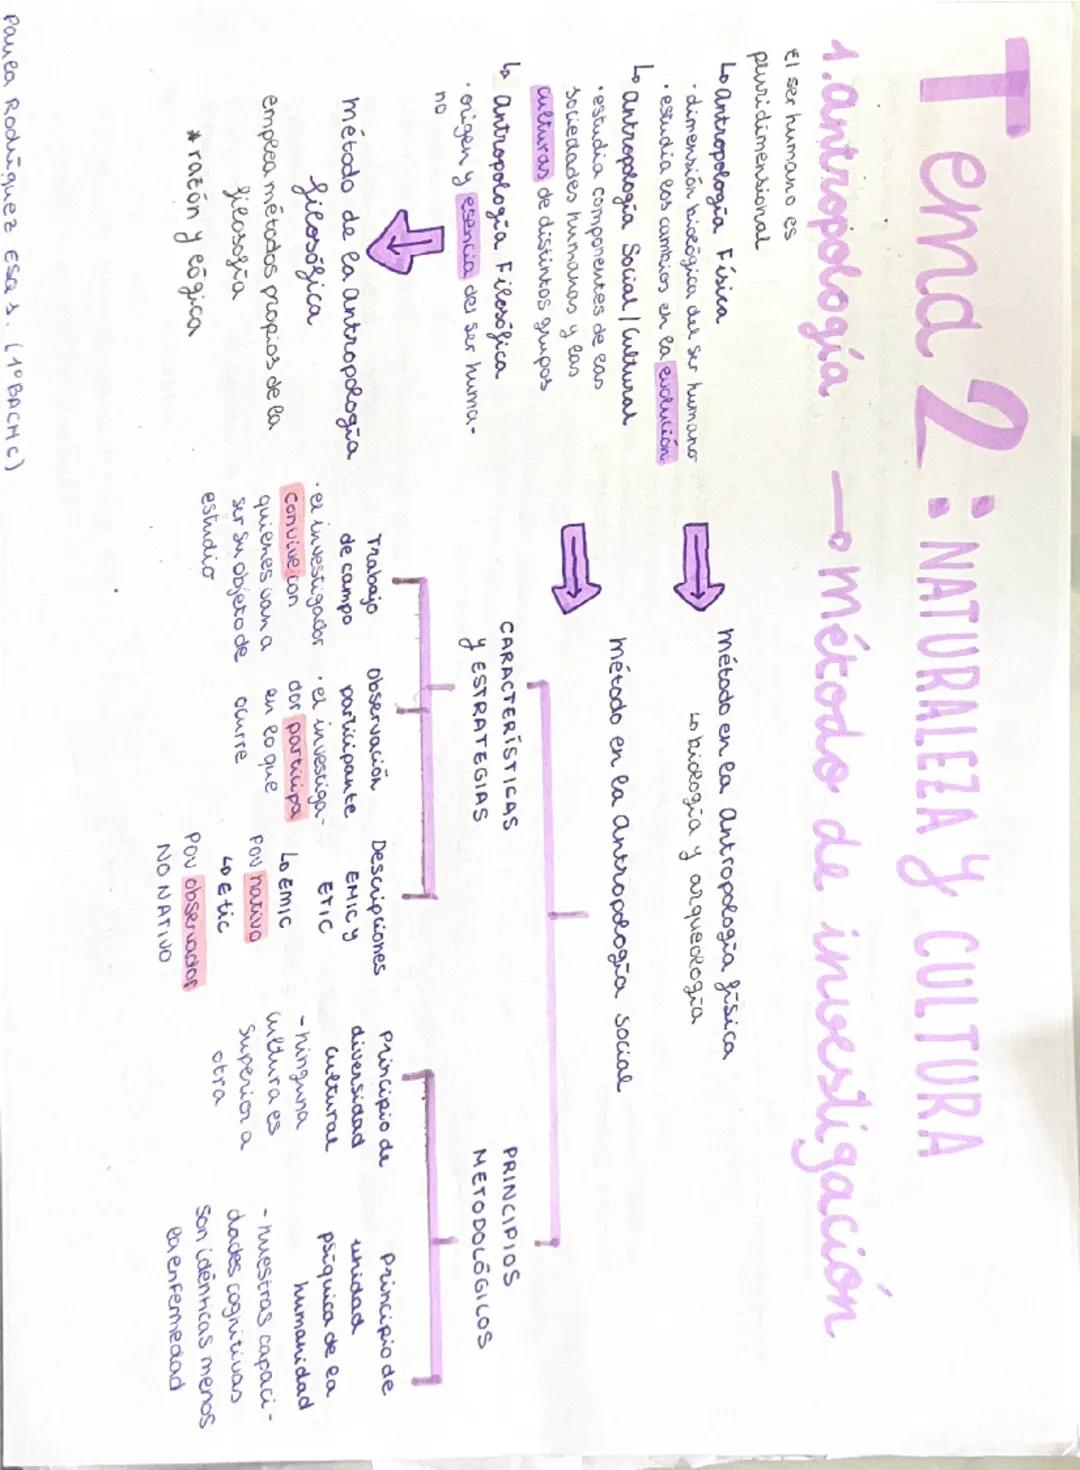 Tema 2: NATURALEZA Y CULTURA
1. antropología → método de investigación
El ser humano es
pluridimensional
↳ antropología Física
· dimensión biológica del ser humano
· estudia los cambios en la evolución
↳ antropología Social/Cultural
· estudia componentes de las
sociedades humanas y las
culturas de distintos grupos
↳ antropología Filosófica
· origen y esencia del ser huma-
no
método de la antropología
filosófica
emplea métodos propios de la
filosofía
* razón y lógica
método en la antropología física
↳ biología y arqueología
método en la antropología social
CARACTERÍSTICAS
Y ESTRATEGIAS
Trabajo
de campo
· el investigador
convive con
quienes van a
ser su objeto de
estudio
observación
participante
· el investiga-
dor participa
en lo que
ocurre
Descripciones
EMIC y
ETIC
↳ EMIC
POV nativo
↳ Etic
POV observador
NO NATIVO
PRINCIPIOS
METODOLÓGICOS
Principio de
diversidad
cultural
- ninguna
cultura es
superior a
otra
Principio de
unidad
psíquica de la
humanidad
- nuestras capaci-
dades cognitivas
son idénticas menos
la enfermedad
Paula Rodríguez Esa s. (1º BACH C)